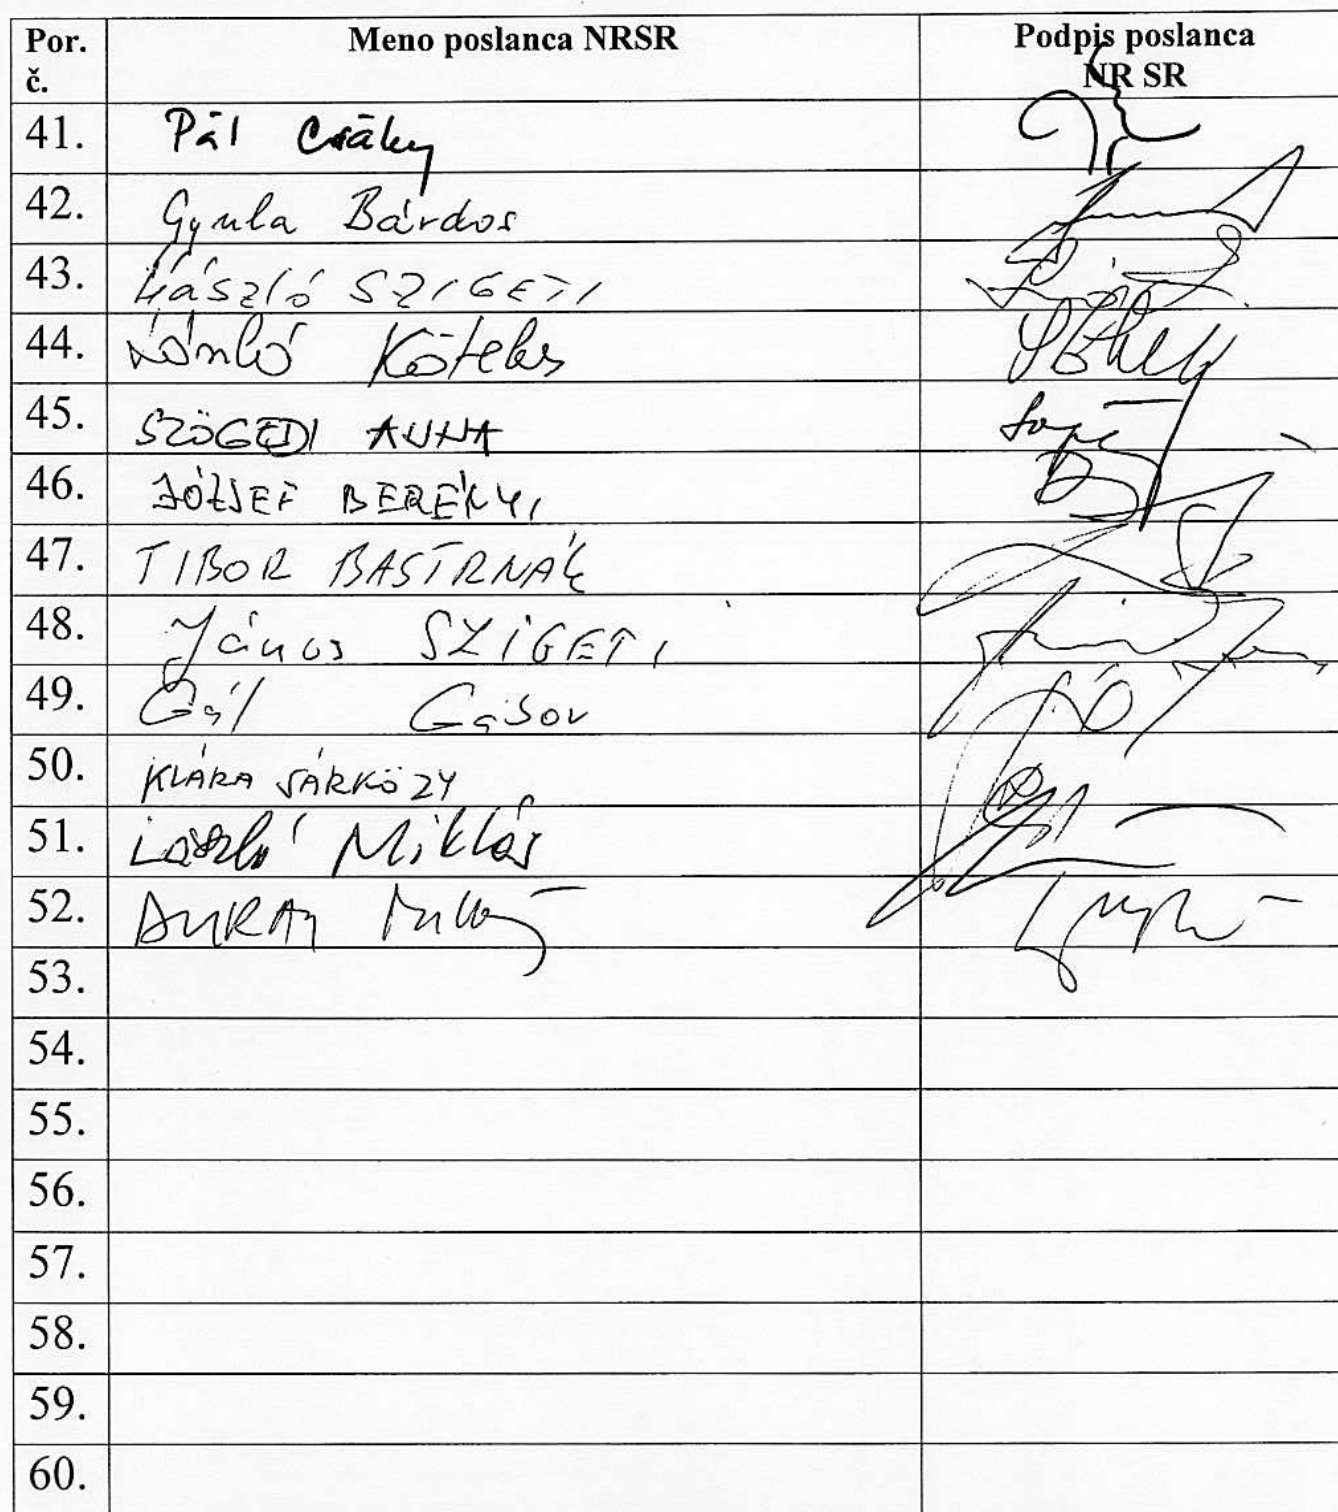 Por. č. Meno poslanca NRSR Podpis poslanca NR SR
41. Pál Csáky
42. Gyula Bárdos
43. László SZIGETI
44. László Köteles
45. SZÖGEDI ANNA
46. JÓZSEF BERÉNYI
47. TIBOR BASTRNÁK
48. János SZIGETI
49. Gál Gábor
50. KLÁRA SÁRKÖZY
51. László Miklós
52. DURAY Miklós
53.
54.
55.
56.
57.
58.
59.
60.